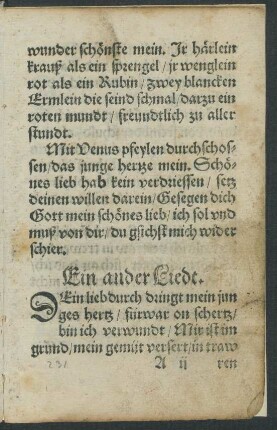 wunder schönste mein. Jr härlein
krauß als ein sprengel / jr wenglein
rot als ein Rubin / zwey blancken
Ermlein die seind schmal / darzu ein
roten mundt / freundtlich zu aller
stundt.
Mit Venus pfeylen durchschos-
sen / das junge hertze mein. Schö-
nes lieb hab kein verdriessen / setz
deinen willen darein / Gesegen dich
Gott mein schönes lieb / ich sol vnd
muß von dir / du gsichst mich wider
schier.
Ein ander Liedt.
DEin lieb durch dringt mein jun
ges hertz / fürwar on schertz /
bin ich verwundt / Mir ist im
grund / mein gemüt versert / in traw
A ij ren
231